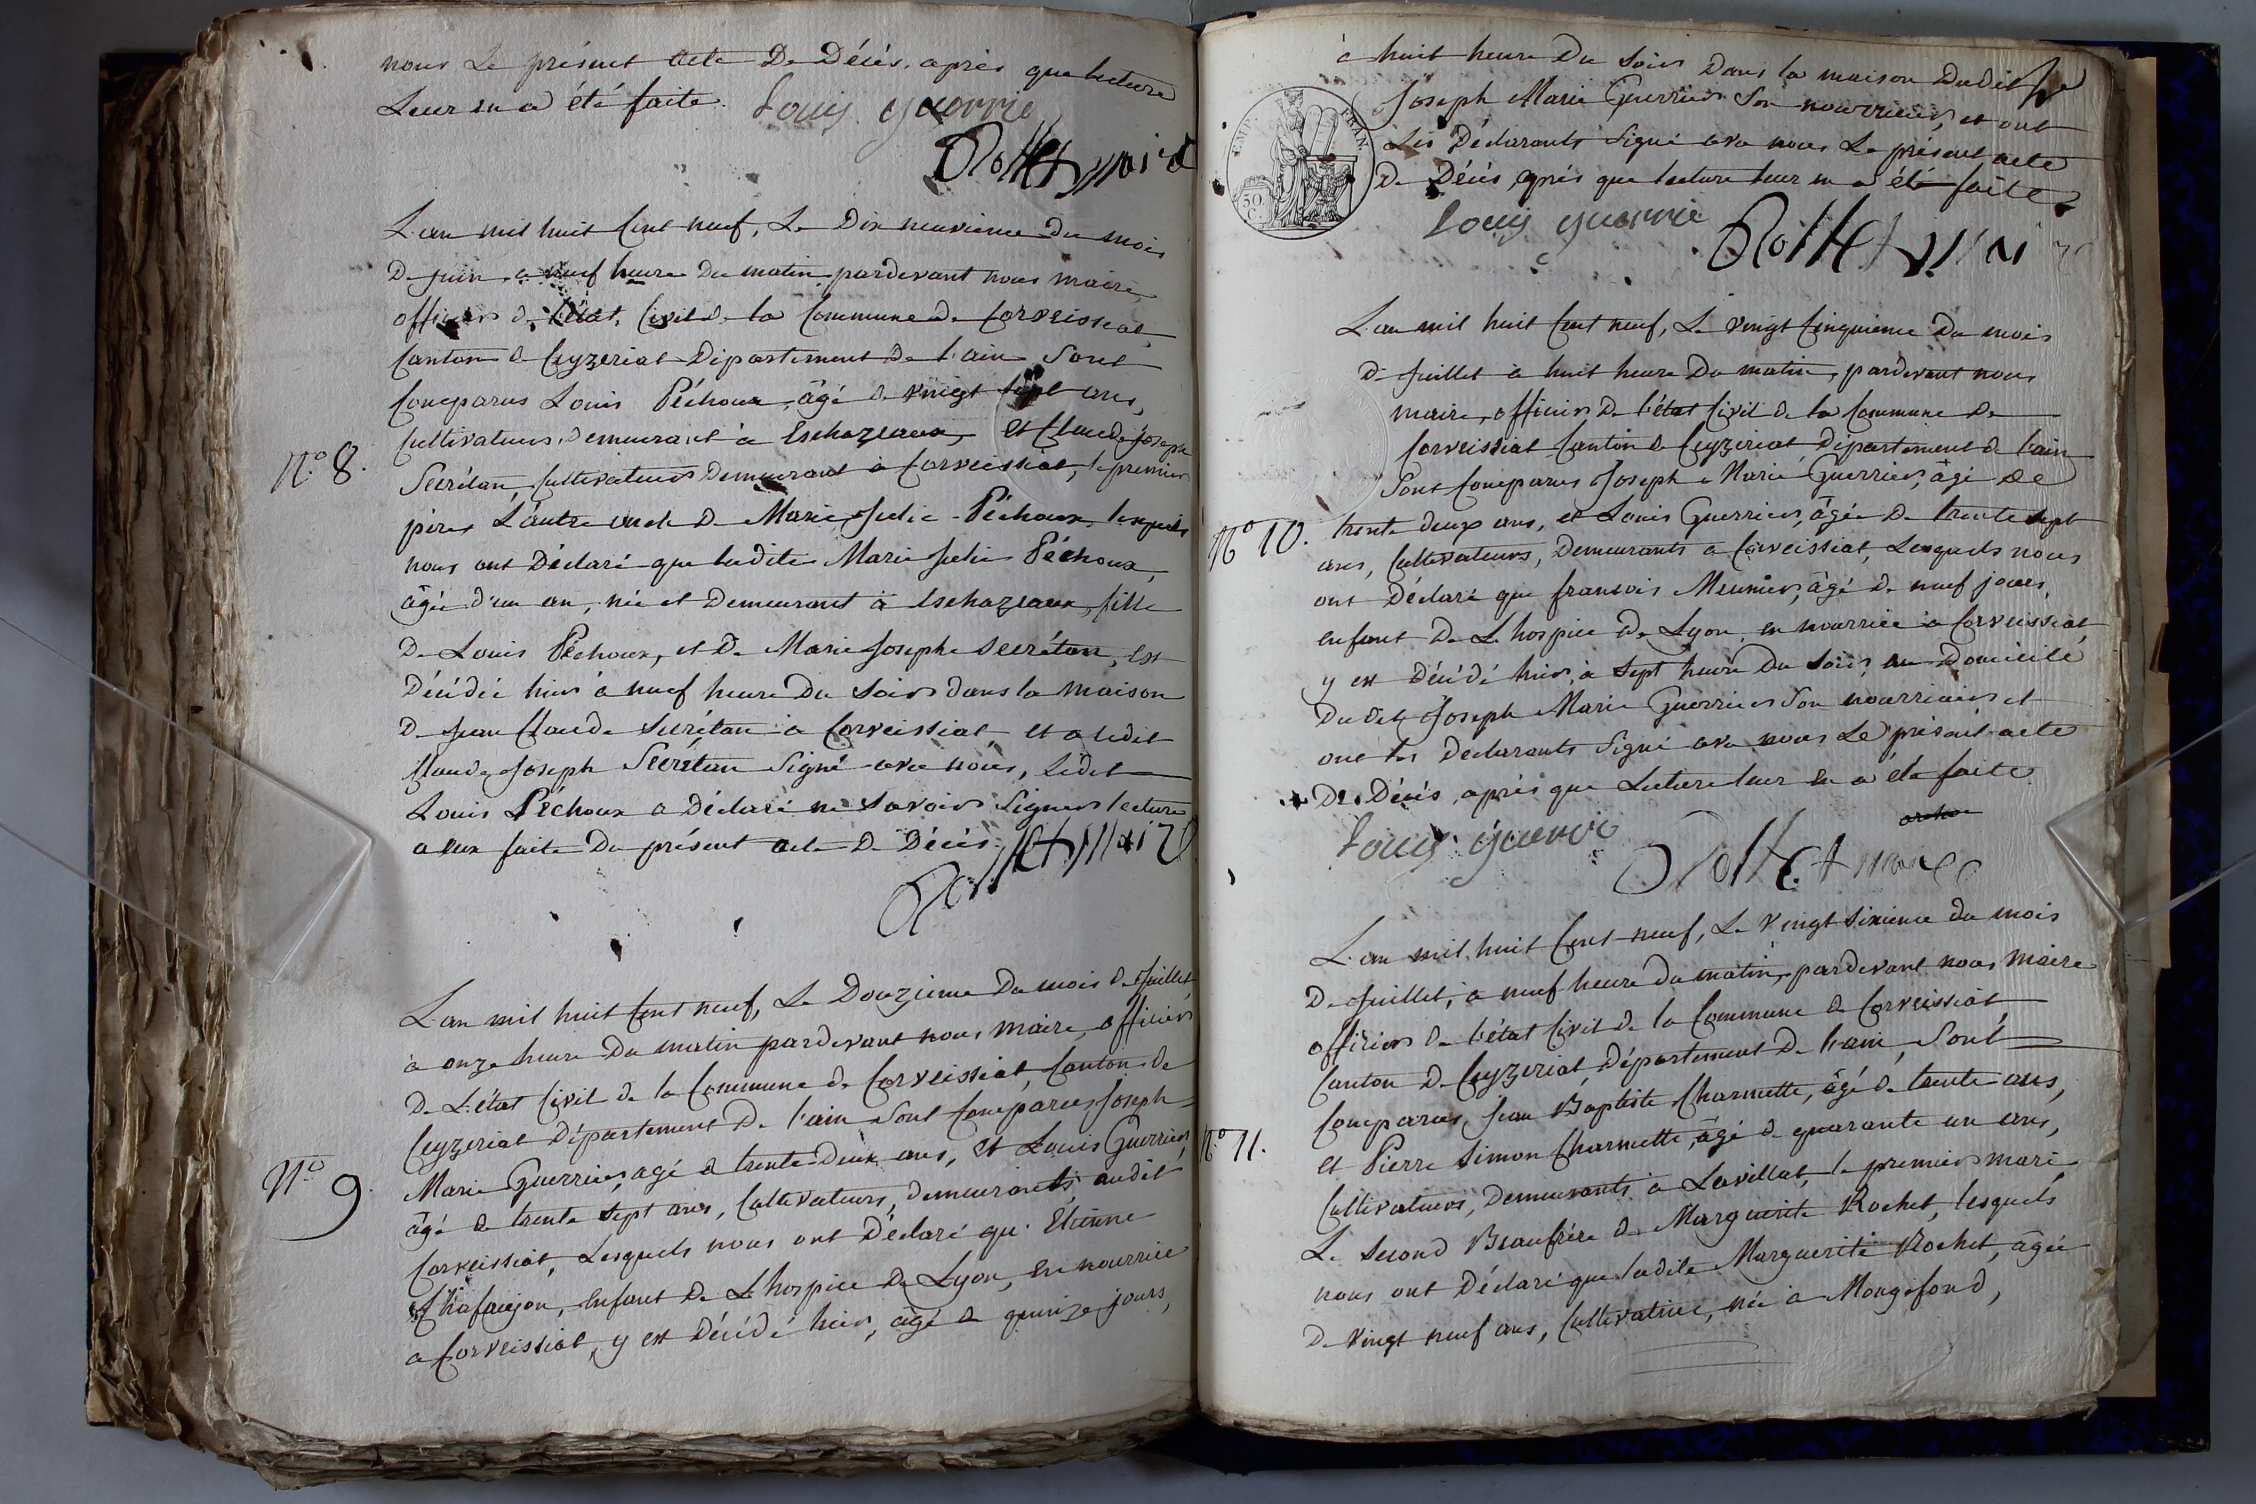 nous Le présent acte De Décés, après que lecture
Leur en a été faite. Louis guerrié
Rollet maire
L'an mil huit Cent neuf, Le Dix neuvieme du mois
De juin, a neuf heure du matin, pardevant nous maire,
officier de l'état Civil de la Commune de Corveissiat,
Canton de Ceyzeriat Département de l'ain Sont
Comparus Louis Péchoux, âgé de vingt sept ans,
Cultivateur, Demeurant à Eschazeaux, et Claude Joseph
N.º 8.
Secrétan, Cultivateur Demeurant à Corveissiat, le premier
père, L'autre oncle De Marie Julie Péchoux, lesquels
nous ont Déclaré que ladite Marie Julie Péchoux,
âgée d'un an, née et Demeurant à Eschazeaux, fille
De Louis Péchoux, et De Marie Joseph Secrétan, est
Décédée hier à neuf heure Du Soir dans la maison
De Jean Claude Secrétan à Corveissiat et a ledit
Claude Joseph Secrétan Signé avec nous, Ledit
Louis Péchoux a Déclaré ne Savoir Signer lecture
a eux faite Du présent acte De Décés.
Rollet maire
L'an mil huit Cent neuf, Le Douzieme Du mois de Juillet
à onze heure Du matin pardevant nous maire, officier
De L'état Civil de la Commune de Corveissiat, Canton de
Ceyzeriat Département De l'ain Sont Comparus Joseph
N.º 9.
Marie Guerrier, agé de trente Deux ans, et Louis Guerrier,
âgé de trente sept ans, Cultivateurs, demeurants audit
Corveissiat, Lesquels nous ont Déclaré qu'Etienne
Chafanjon, enfant De L'hospice De Lyon, en nourrice
a Corveissiat, y est Décédé hier, âgé de quinze jours,
à huit heure Du Soir Dans la maison Dudit
Joseph Marie Guerrier Son nourricier, et ont
Les Déclarants Signé avec nous Le présent acte
De Décés, après que lecture leur en a été faite
EMP. FRAN.
50 C.
Louis guerrie Rollet maire
L'an mil huit Cent neuf, Le vingt Cinquieme Du mois
De Juillet à huit heure Du matin, pardevant nous
maire, officier De l'état Civil de la Commune De
Corveissiat Canton de Ceyzeriat, département de l'ain
Sont Comparus Joseph Marie Guerrier, âgé de
N.º 10.
trente deux ans, et Louis Guerrier, âgé De trente sept
ans, Cultivateurs, Demeurants a Corveissiat, Lesquels nous
ont Déclaré que francois Meunier, âgé de neuf jours,
enfant De L'hospice De Lyon, en nourrice à Corveissiat,
y est Décédé hier, à Sept heure Du Soir, au Domicile
Dudit Joseph Marie Guerrier Son nourricier et
ont les Déclarants Signé avec nous Le présent acte
De Décés, après que Lecture leur en a été faite
Louis guerrie
Rollet maire
L'an mil huit Cent neuf, Le vingt Sixieme du mois
De Juillet, à neuf heure Du matin, pardevant nous, Maire
officier De l'état Civil de la Commune de Corveissiat,
Canton De Ceyzeriat, Département De l'ain, Sont
Comparus, Jean Baptiste Charnette, âgé de trente ans,
N.º 11.
et Pierre Simon Charnette, âgé de quarante un ans,
Cultivateurs, Demeurants à Lavillat, le premier mari,
Le Second Beaufrére De Marguerite Rochet, lesquels
nous ont Déclaré que ladite Marguerite Rochet, âgée
De vingt neuf ans, Cultivatrice, née à Mongefond,